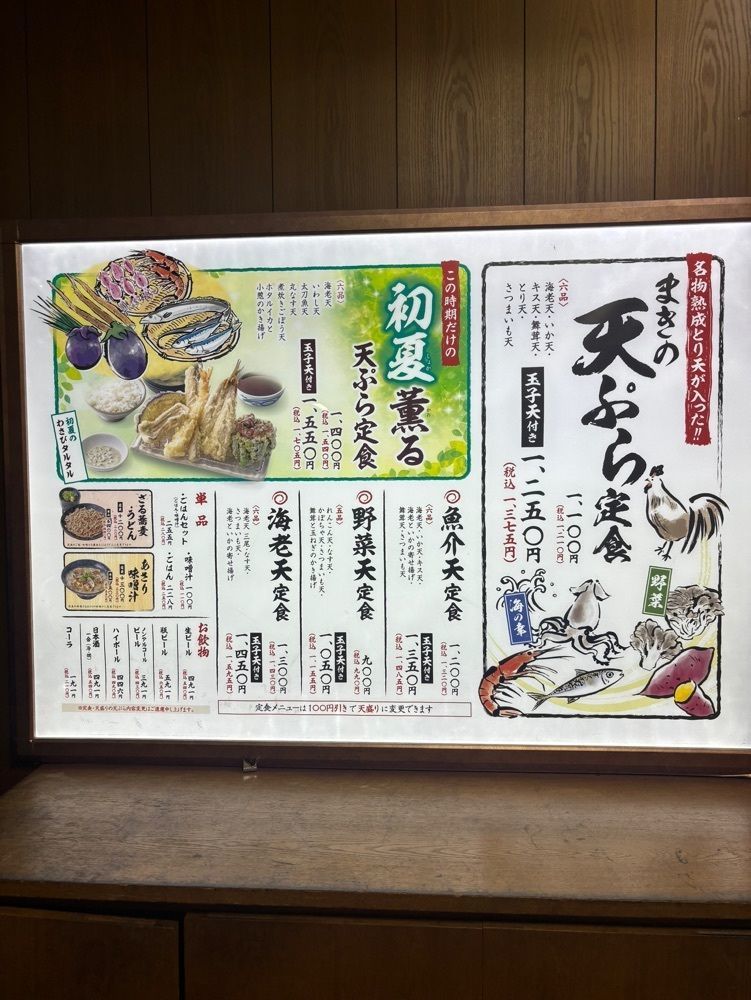 名物熟成とり天が入った!!
まきの
天ぷら定食
一、一〇〇円
(税込 一、二一〇円)
玉子天付き 一、二五〇円
(税込 一、三七五円)
〈六品〉
海老天・いか天・
キス天・舞茸天・
とり天・
さつまいも天
野菜
海の幸
この時期だけの
初夏薫る
しょか
かお
天ぷら定食
一、四〇〇円
(税込 一、五四〇円)
玉子天付き
一、五五〇円
(税込 一、七〇五円)
〈六品〉
海老天
いわし天
太刀魚天
丸なす天
煮炊きごぼう天
ホタルイカと
小葱のかき揚げ
初夏の
わさびタルタル
魚介天定食
〈六品〉
海老天・いか天・キス天・
海老といかの寄せ揚げ
舞茸天・さつまいも天
一、二〇〇円
(税込 一、三二〇円)
玉子天付き
一、三五〇円
(税込 一、四八五円)
野菜天定食
〈五品〉
れんこん天・なす天・
かぼちゃ天・さつまいも天・
舞茸と玉ねぎのかき揚げ
九〇〇円
(税込 九九〇円)
玉子天付き
一、〇五〇円
(税込 一、一五五円)
海老天定食
〈六品〉
海老天 三尾・なす天・
さつまいも天・
海老といかの寄せ揚げ
一、三〇〇円
(税込 一、四三〇円)
玉子天付き
一、四五〇円
(税込 一、五九五円)
定食メニューは100円引きで天盛りに変更できます
単品
・ごはんセット
二五五円
・味噌汁
一〇〇円
・ごはん
二二八円
ざる蕎麦
・うどん
+二〇〇円
あさり
味噌汁
+五〇〇円
お飲物
生ビール
四九一円
瓶ビール
五九一円
ノンアルコール
ビール
三九一円
ハイボール
四四六円
日本酒
四九一円
コーラ
一九一円
※定食・天盛りの天ぷら内容変更はご遠慮申し上げます。